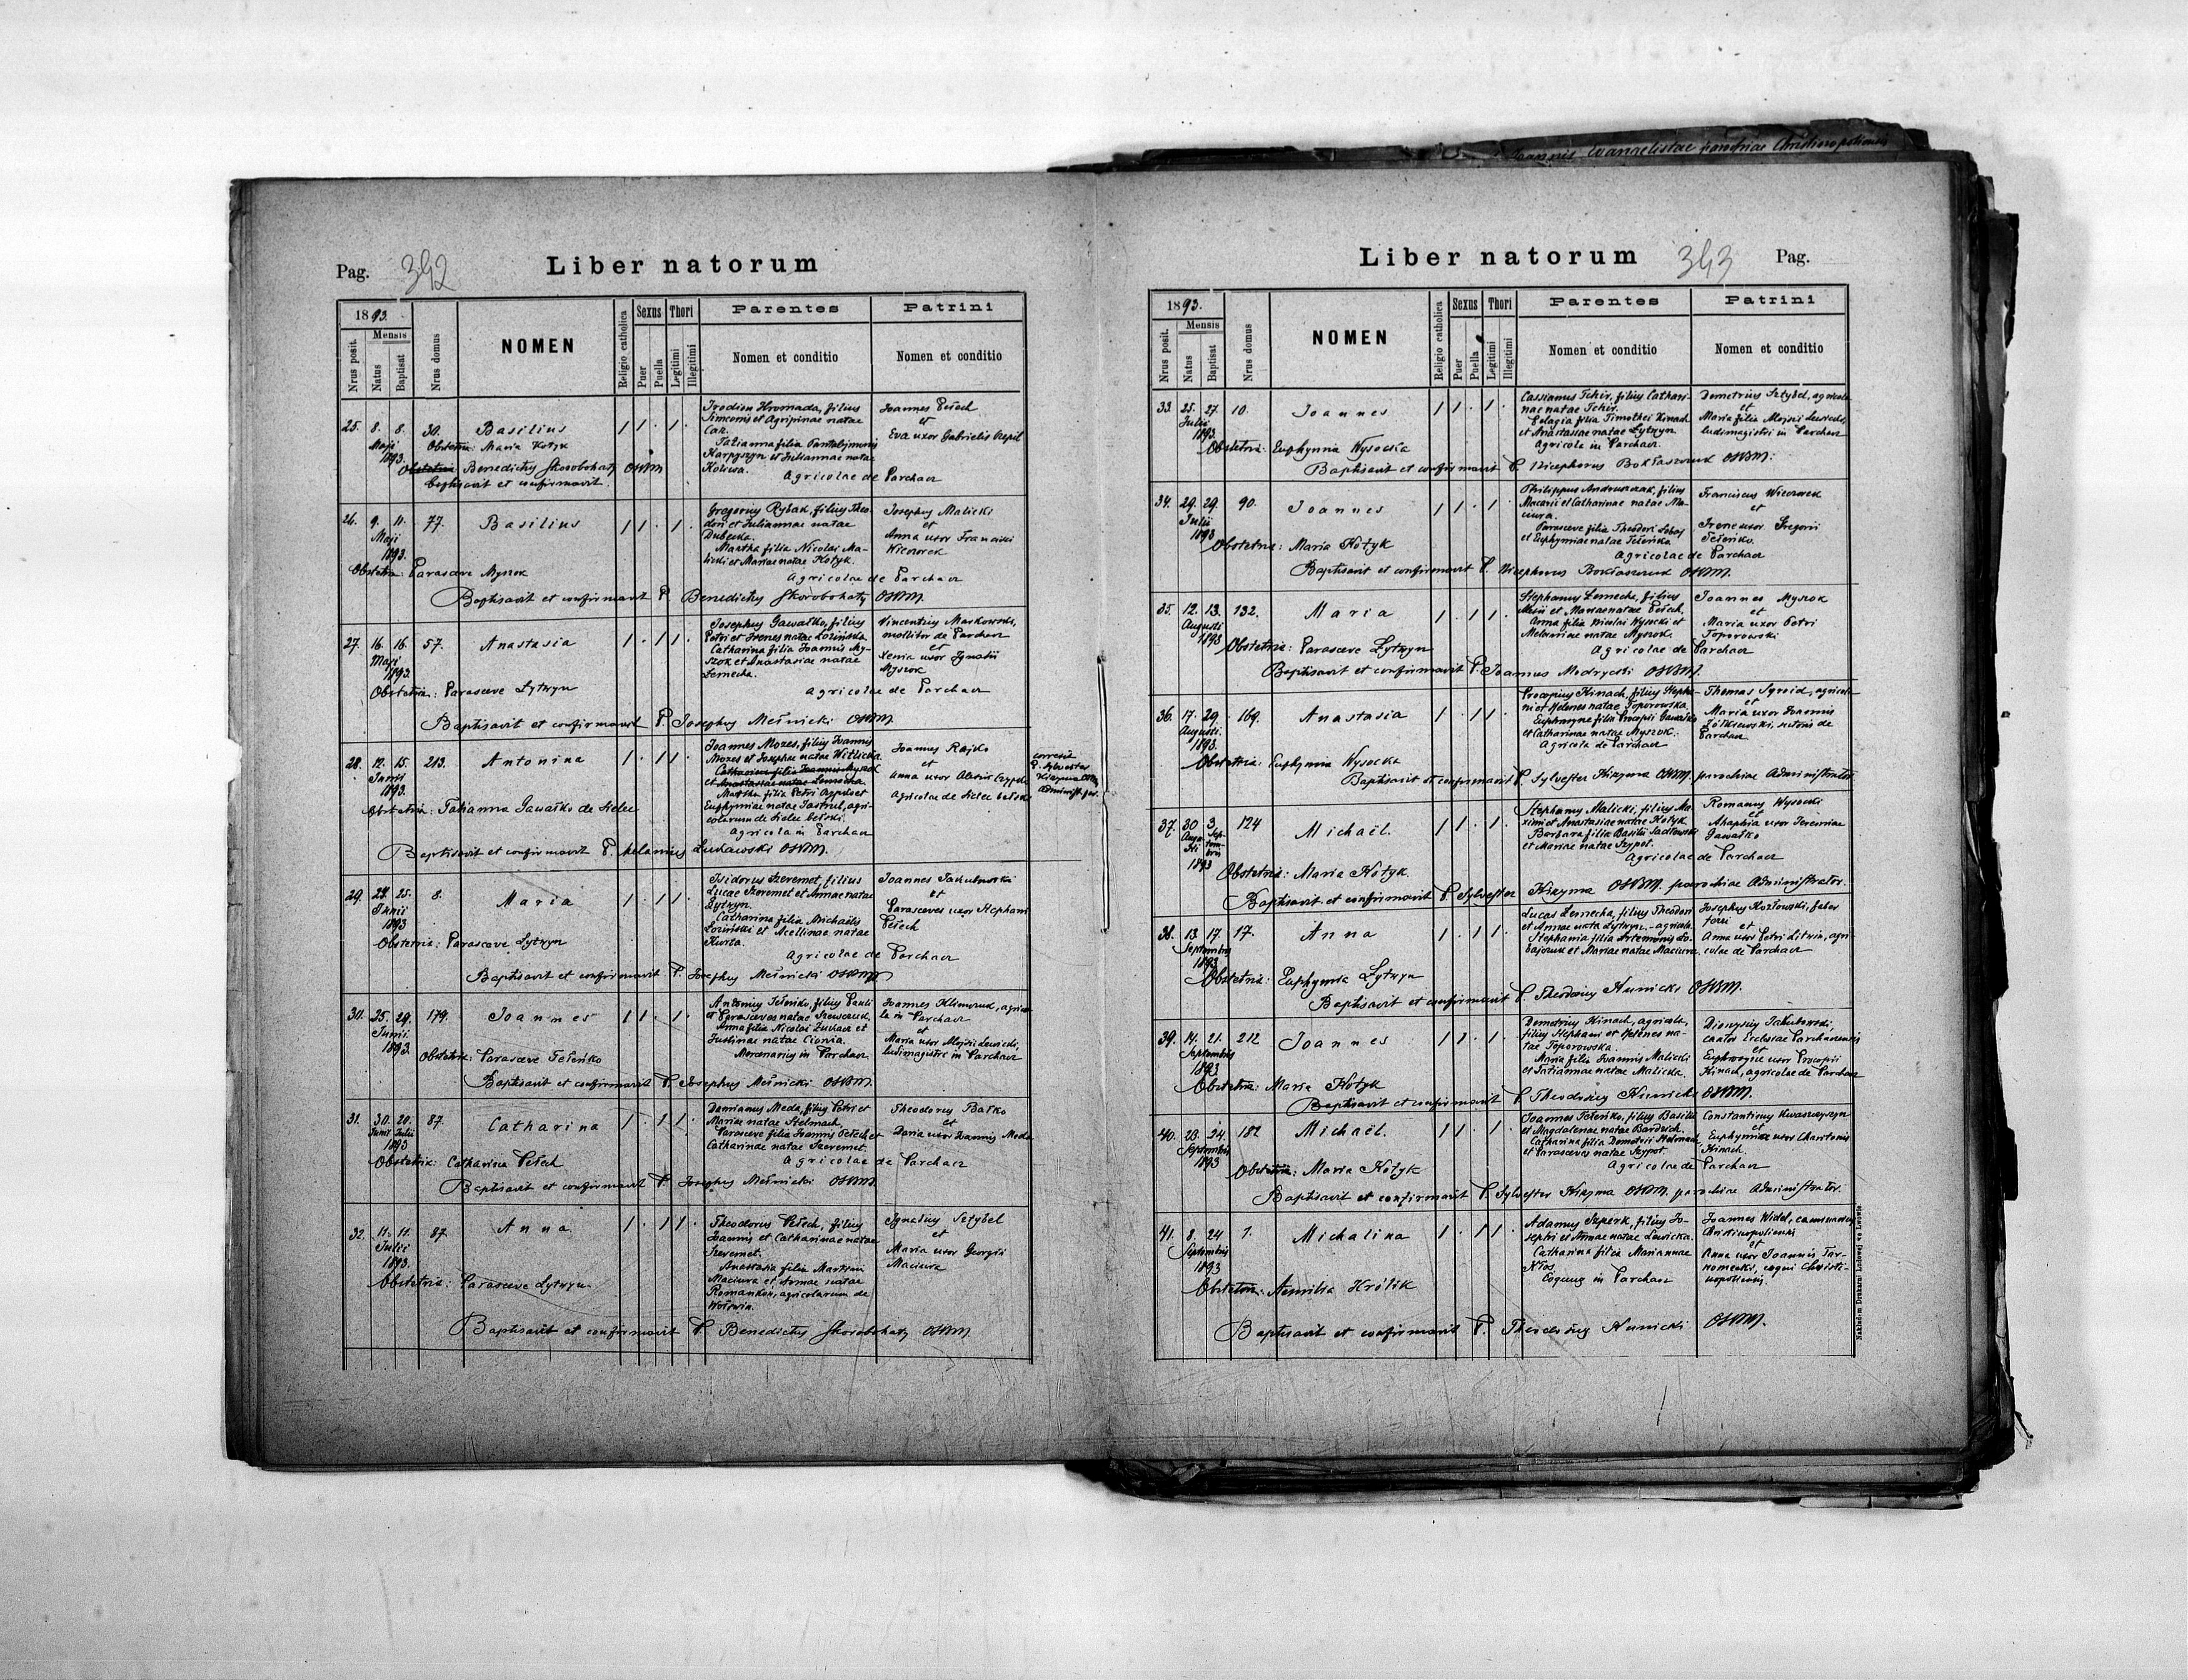 Joannis Evangelistae parochiae Christinopoliensis
Pag. 342 Liber natorum
1893.
Mensis
Nrus posit.
Natus
Baptisat
Nrus domus
NOMEN
Religio catholica
Sexus
Puer
Puella
Thori
Legitimi
Illegitimi
Parentes
Nomen et conditio
Patrini
Nomen et conditio
25. 8. 8. 30. Basilius 1 1 · 1 ·
Maji
1893.
Obstetrix: Maria Kotyk
Benedictus Skorobohaty OSBM
baptisavit et confirmavit.
Irodion Hromada, filius
Simeonis et Agripinae natae
Car.
Tatianna filia Pantalejmonis
Karpyszyn et Juliannae natae
Koliwa.
Agricolae de Parchacz
Joannes Pełech
et
Eva uxor Gabrielis
26. 9. 11. 77. Basilius 1 1 · 1 ·
Maji
1893.
Obstetrix: Parasceve Myszok
Gregorius Rybak, filius Theo-
dori et Juliannae natae
Dubecka.
Martha filia Nicolai Ma-
licki et Mariae natae Kotyk.
Agricolae de Parchacz
Josephus Malicki
et
Anna uxor Francisci
Wieczorek
Baptisavit et confirmavit P. Benedictus Skorobohaty OSBM.
27. 16. 16. 57. Anastasia 1 · 1 1 ·
Maji
1893.
Obstetrix: Parasceve Lytwyn
Josephus Gawałko, filius
Petri et Irenes natae Łozińska.
Catharina filia Joannis My-
szok et Anastasiae natae
Lemecha.
Vincentius Markowski,
molitor de Parchacz
et
Xenia uxor Ignatii
Myszok
Agricolae de Parchacz
Baptisavit et confirmavit P. Josephus Melnicki OSBM.
28. 12. 15. 213. Antonina 1 · 1 1 ·
Junii
1893.
Obstetrix: Tatianna Gawałko de Sielec
Joannes Mozes, filius Joannis
Mozes et Josephae natae Witlicka.
Catharina filia Joannis Myszok
et Anastasiae natae Lemecha.
Martha filia Petri
Euphymiae natae Jastrub, agri-
colarum de Sielec bełski.
Agricola in Parchacz
Joannes Rajko
et
Anna uxor Alexii
Agricolae de Sielec bełski
correxit
P. Sylvester
Kizyma OSBM
Administ. par.
Baptisavit et confirmavit P. Melanius Luhawski OSBM.
29. 24. 25. 8. Maria 1 · 1 1 ·
Junii
1893
Obstetrix: Parasceve Lytwyn
Isidorus Szeremet, filius
Lucae Szeremet et Annae natae
Lytwyn.
Catharina filia Michaëlis
Łoziński et Acellinae natae
Agricolae de Parchacz
Joannes Jakubowski
et
Parasceves uxor Stephani
Pełech
Baptisavit et confirmavit P. Josephus Melnicki OSBM
30. 25. 29. 179. Joannes 1 1 · 1 ·
Junii
1893.
Obstetrix: Parasceve Teleńko
Antonius Teleńko, filius Pauli
et Parasceves natae Szewczuk.
Anna filia Nicolai Luhacz et
Justinae natae Cionia.
Mercenarius in Parchacz
Joannes Klimczuk, agrico-
la in Parchacz
et
Maria uxor Alojsii Lewicki,
ludimagistri in Parchacz
Baptisavit et confirmavit P. Josephus Melnicki OSBM.
31. 30. 20. 87. Catharina 1 · 1 1 ·
Junii Julii
1893
Obstetrix: Catharina Pełech
Damianus Meda, filius Petri et
Mariae natae Stelmach.
Parasceve filia Joannis Pełech et
Catharinae natae Szeremet.
Agricolae de Parchacz
Theodorus Bałko
et
Daria uxor Joannis Meda
Baptisavit et confirmavit P. Josephus Melnicki OSBM.
32. 11. 11. 87. Anna 1 · 1 1 ·
Julii
1893.
Obstetrix: Parasceve Lytwyn.
Theodorus Pełech, filius
Joannis et Catharinae natae
Szeremet.
Anastasia filia Martini
Maciura et Annae natae
Romankow, agricolarum de
Wolswin.
Ignatius Sztybel
et
Maria uxor Georgii
Maciura
Baptisavit et confirmavit P. Benedictus Skorobohaty OSBM.
Liber natorum 343 Pag.
1893.
Mensis
Nrus posit.
Natus
Baptisat
Nrus domus
NOMEN
Religio catholica
Sexus
Puer
Puella
Thori
Legitimi
Illegitimi
Parentes
Nomen et conditio
Patrini
Nomen et conditio
33. 25. 27. 10. Joannes 1 1 · 1 ·
Julii
1893.
Obstetrix: Euphymia Wysocka
Cassianus Tchir, filius Cathari-
nae natae Tchir.
Pelagia filia Timothei Kinach
et Anastasiae natae Lytwyn.
Agricola in Parchacz.
Demetrius Sztybel, agricola
et
Maria filia Alojsii Lewicki,
ludimagistri in Parchacz
Baptisavit et confirmavit P. Nicephorus Bokłaszczuk OSBM.
34. 29. 29. 90. Joannes 1 1 · 1 ·
Julii
1893
Obstetrix: Maria Kotyk
Philippus Andruszczak, filius
Macarii et Catharinae natae Ma-
ciura.
Parasceve filia Theodori
et Euphymiae natae Teleńko
Agricolae de Parchacz
Franciscus Wieczorek
et
Irene uxor Gregorii
Teleńko.
Baptisavit et confirmavit P. Nicephorus Bokłaszczuk OSBM.
35. 12. 13. 132. Maria 1 · 1 1 ·
Augusti
1893
Obstetrix: Parasceve Lytwyn
Stephanus Lemecha, filius
Alexii et Mariae natae Pełech.
Anna filia Nicolai Wysocki et
Melanniae natae Myszok.
Agricolae de Parchacz
Joannes Myszok
et
Maria uxor Petri
Toporowski
Baptisavit et confirmavit P. Joannes Modrycki OSBM.
36. 17. 29. 169. Anastasia 1 · 1 1 ·
Augusti.
1893.
Obstetrix: Euphymia Wysocka
Procopius Kinach, filius Stepha-
ni et Helenes natae Toporowska.
Euphrosyne filia Procopii Gawałko
et Catharinae natae Myszok.
Agricola de Parchacz
Thomas Syroid, agricola
et
Maria uxor Joannis
Żółkiewski, sutoris de
Parchacz
Baptisavit et confirmavit P. Sylvester Kizyma OSBM. parochiae Administrator
37. 30 3. 124 Michaël. 1 1 · 1 ·
Augu-
sti
Sep-
tem-
bris
1893
Obstetrix: Maria Kotyk
Stephanus Malicki, filius Ma-
ximi et Anastasiae natae Kotyk.
Barbara filia Basilii Sadłowski
et Mariae natae Szypot.
Agricolae de Parchacz
Romanus Wysocki
et
Ahaphia uxor Jeremiae
Gawałko
Baptisavit et confirmavit P. Sylvester Kizyma OSBM. parochiae Administrator.
38. 13. 17. 17. Anna 1 · 1 1 ·
Septembris
1893
Obstetrix: Euphymia Lytwyn
Lucas Lemecha, filius Theodori
et Annae nata Lytwyn. - agricola.
Stephania filia Artemonis Ło-
bajczuk et Mariae natae Maciura.
Josephus Kozłowski, faber
et
Anna uxor Petri Litwin, agri-
colae de Parchacz
Baptisavit et confirmavit P. Theodosius Kunicki OSBM.
39. 14. 21. 212 Joannes 1 1 · 1 ·
Septembris
1893
Obstetrix: Maria Kotyk
Demetrius Kinach, agricola,
filius Stephani et Helenes na-
tae Toporowska.
Maria filia Joannis Malicki
et Tatiannae natae Malicka.
Dionysius Jakubowski,
cantor Ecclesiae Parchacensis
et
Euphrosyne uxor Procopii
Kinach, agricolae de Parchacz
Baptisavit et confirmavit P. Theodosius Kunicki OSBM.
40. 23. 24. 182 Michaël. 1 1 · 1 ·
Septembris
1893
Obstetrix: Maria Kotyk
Joannes Teleńko, filius Basilii
et Magdalenae natae Bardzich.
Catharina filia Demetrii Stelmach,
et Parasceves natae Szypot.
Agricolae de Parchacz
Constantinus Kwaszczyszyn
et
Euphymia uxor Charitonis
Kinach.
Baptisavit et confirmavit P. Sylvester Kizyma OSBM. parochiae Administrator.
41. 8. 24 1. Michalina 1 · 1 1 ·
Septembris
1893
Obstetrix: Aemilia Królik
Adamus Szperk, filius Jo-
sephi et Annae natae Lewicka.
Catharina filia Mariannae
Włos.
Coquus in Parchacz
Joannes Widel,
Christinopoliensis
et
Anna uxor Joannis Tar-
nowecki, coqui Christi-
nopoliensis
Baptisavit et confirmavit P. Theodosius Kunicki OSBM.
Nakładem Drukarni Ludowej we Lwowie.